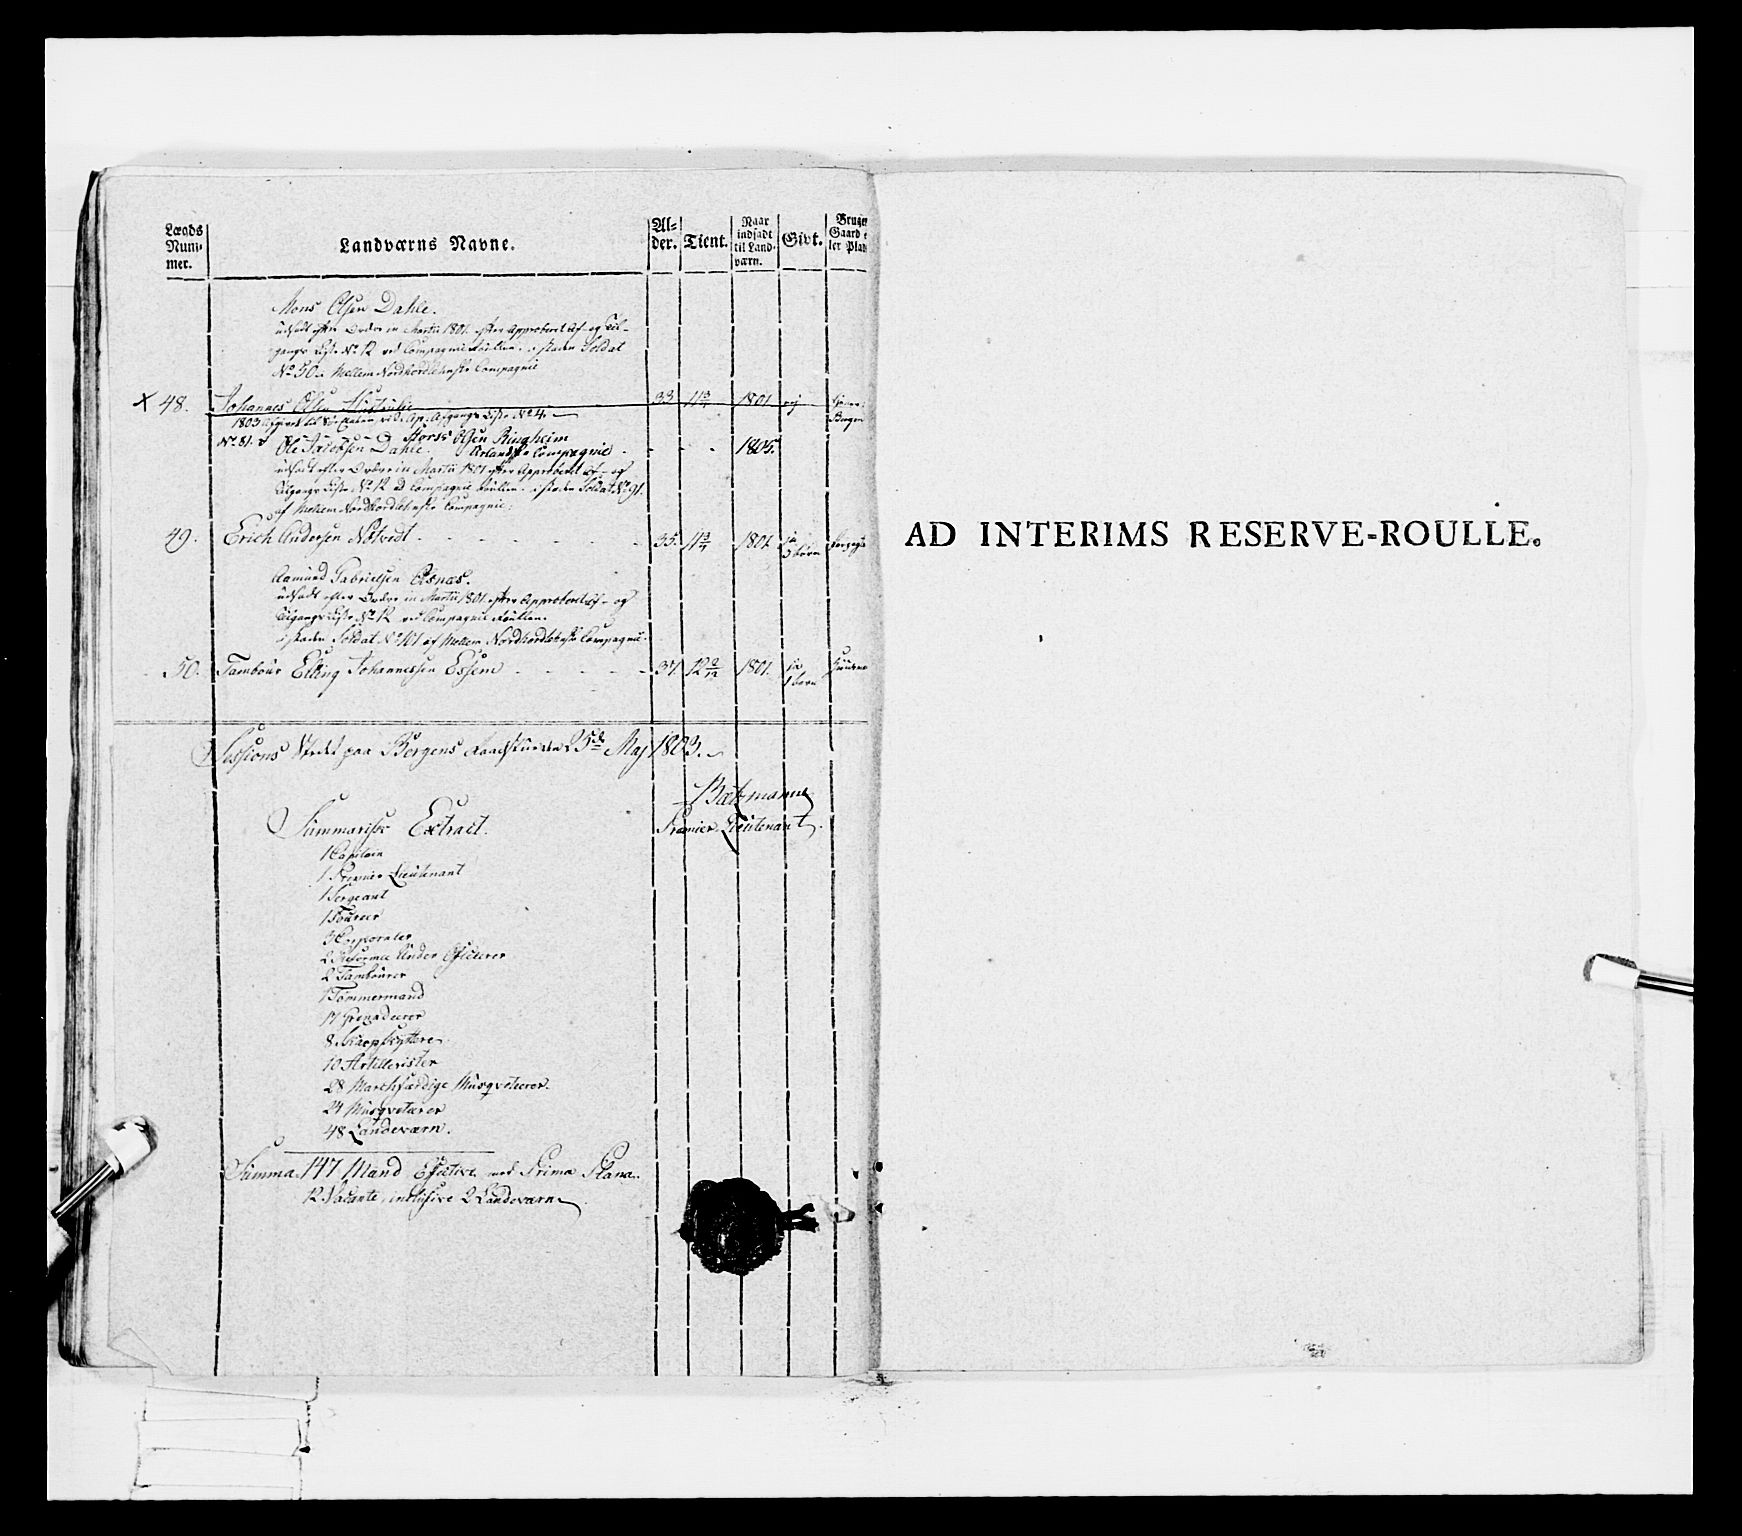 Lægds Nummer. Landværns Navne. Alder. Tient. Naar indsadt til Landværn. Givt. Bruger Gaard e ler Plads
Mons Olsen Dahle.
udsadt efter Ordre in Martii 1801. efter Approberet Af- og Til-
gangs Liste No 12 ved Compagnie Roullen. i stæden Soldat
No 50. Mellem Nordhordlehnske Compagnie
X 48. Johannes Olsen 33 11 3/4 1801 nej
1803 Afgangs Liste No 4.
No 81. Mons Olsen Ringheim
Ole Jacobsen Dahle. Compagnie - - - 1805.
udsadt efter Ordre in Martii 1801 efter Approberet Af- og
Tilgangs Liste No 12 ved Compagnie Roullen. i stæden Soldat No 91.
af Mellem Nordhordlehnske Compagnie.
49. Erich Andersen Nøtvedt - - - 35. 11 3/4 1801 ja 3 børn
Aamund Gabrielsen Asnæs.
udsadt efter Ordre in Martii 1801. efter Approberet Af- og
Tilgangs Liste No 12 ved Compagnie Roullen.
i stæden Soldat No 101 af Mellem Nordhordlehnske Compagnie.
50. Tambour Elling Johannessen Essem - - - 37. 12 2/12 1801. ja 1 barn
Sessions Stedet paa Bergens Raadstue den 25de Maj 1803.
Batzmann
Summarisk Extract. Premier Lieutenant.
1 Capitain
1 Premier Lieutenant
1 Sergeant
1 Foureer
3 Corporaler
2 Reforme Under Officerer
2 Tambourer
1 Tømmermand
17 Grenadeerer
8 Skarpskyttere
10 Artillerister
28 Marchfærdige Musqveteerer.
24 Musqveteerer
48 Landeværn.
Summa 147 Mand Efective med Prima Plana.
12 Vacante, inclusive 2 Landeværn
AD INTERIMS RESERVE-ROULLE.